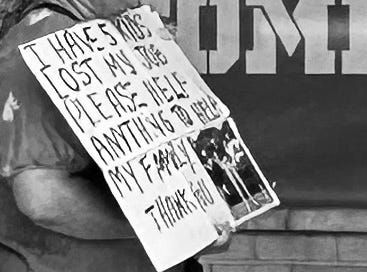 I HAVE 5 KIDS
LOST MY JOB
PLEASE HELP
ANYTHING TO HELP
MY FAMILY
THANK YOU